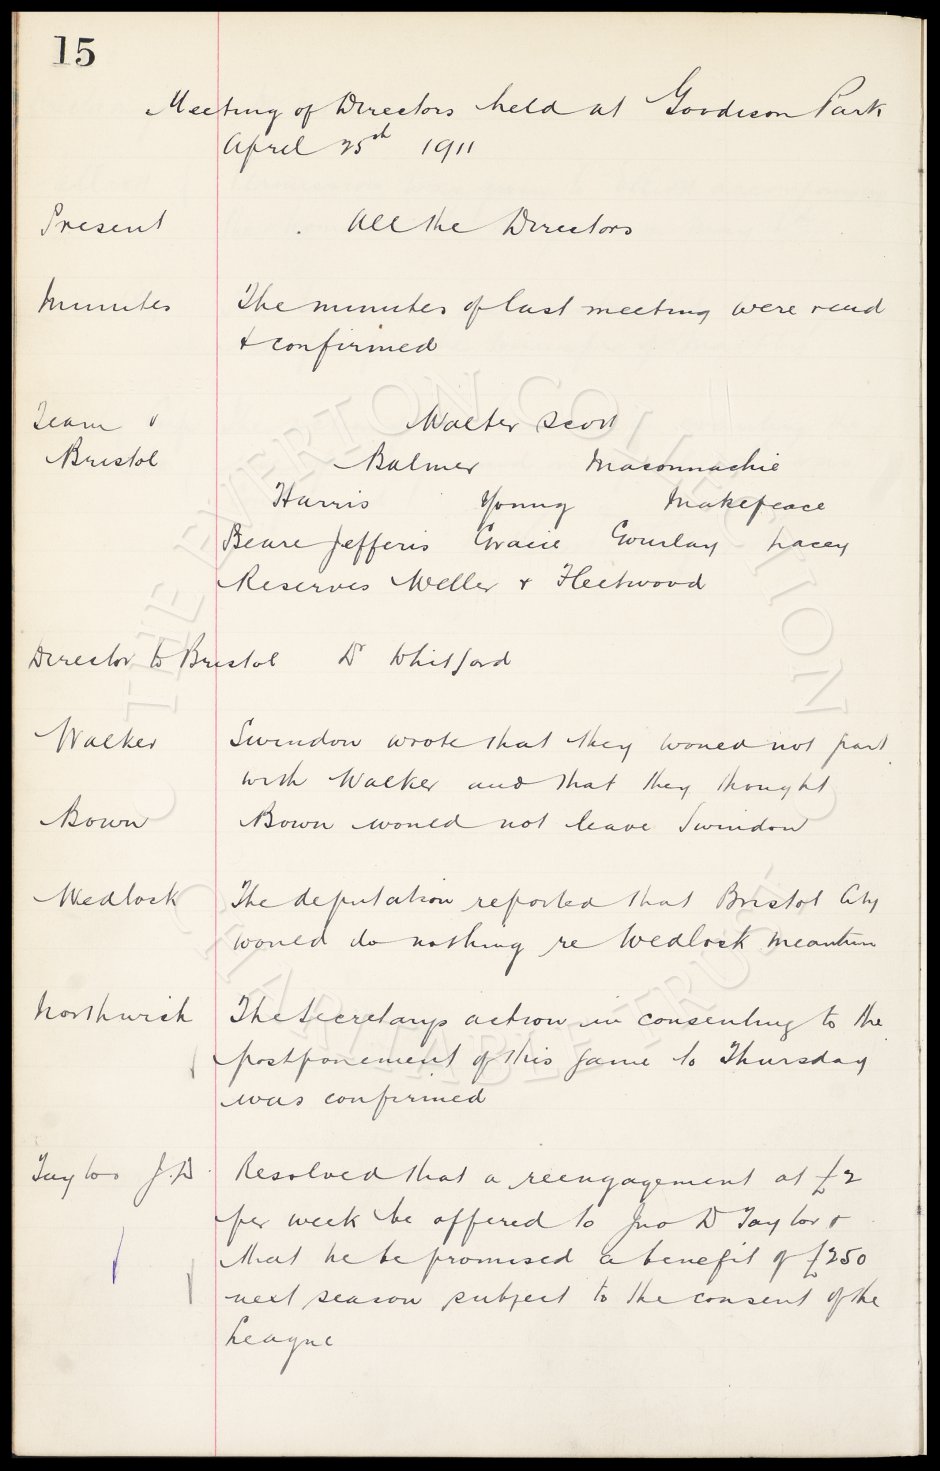 15
Meeting of Directors held at Goodison Park
April 25th 1911
Present All the Directors
Minutes The minutes of last meeting were read
& confirmed
Team v Walter Scott
Bristol Balmer Maconnachie
Harris Young Makepeace
Beare Jefferis Gracie Gourlay Lacey
Reserves Weller & Fleetwood
Director to Bristol Dr Whitford
Walker Swindon wrote that they would not part
with Walker and that they thought
Bown Bown would not leave Swindon
Wedlock The deputation reported that Bristol City
would do nothing re Wedlock meantime
Northwich The Secretarys action in consenting to the
postponement of this game to Thursday
was confirmed
Taylor J.D. Resolved that a reengagement at £2
per week be offered to Jno D Taylor &
that he be promised a benefit of £250
next season subject to the consent of the
League
THE EVERTON COLLECTION
CHARITABLE TRUST